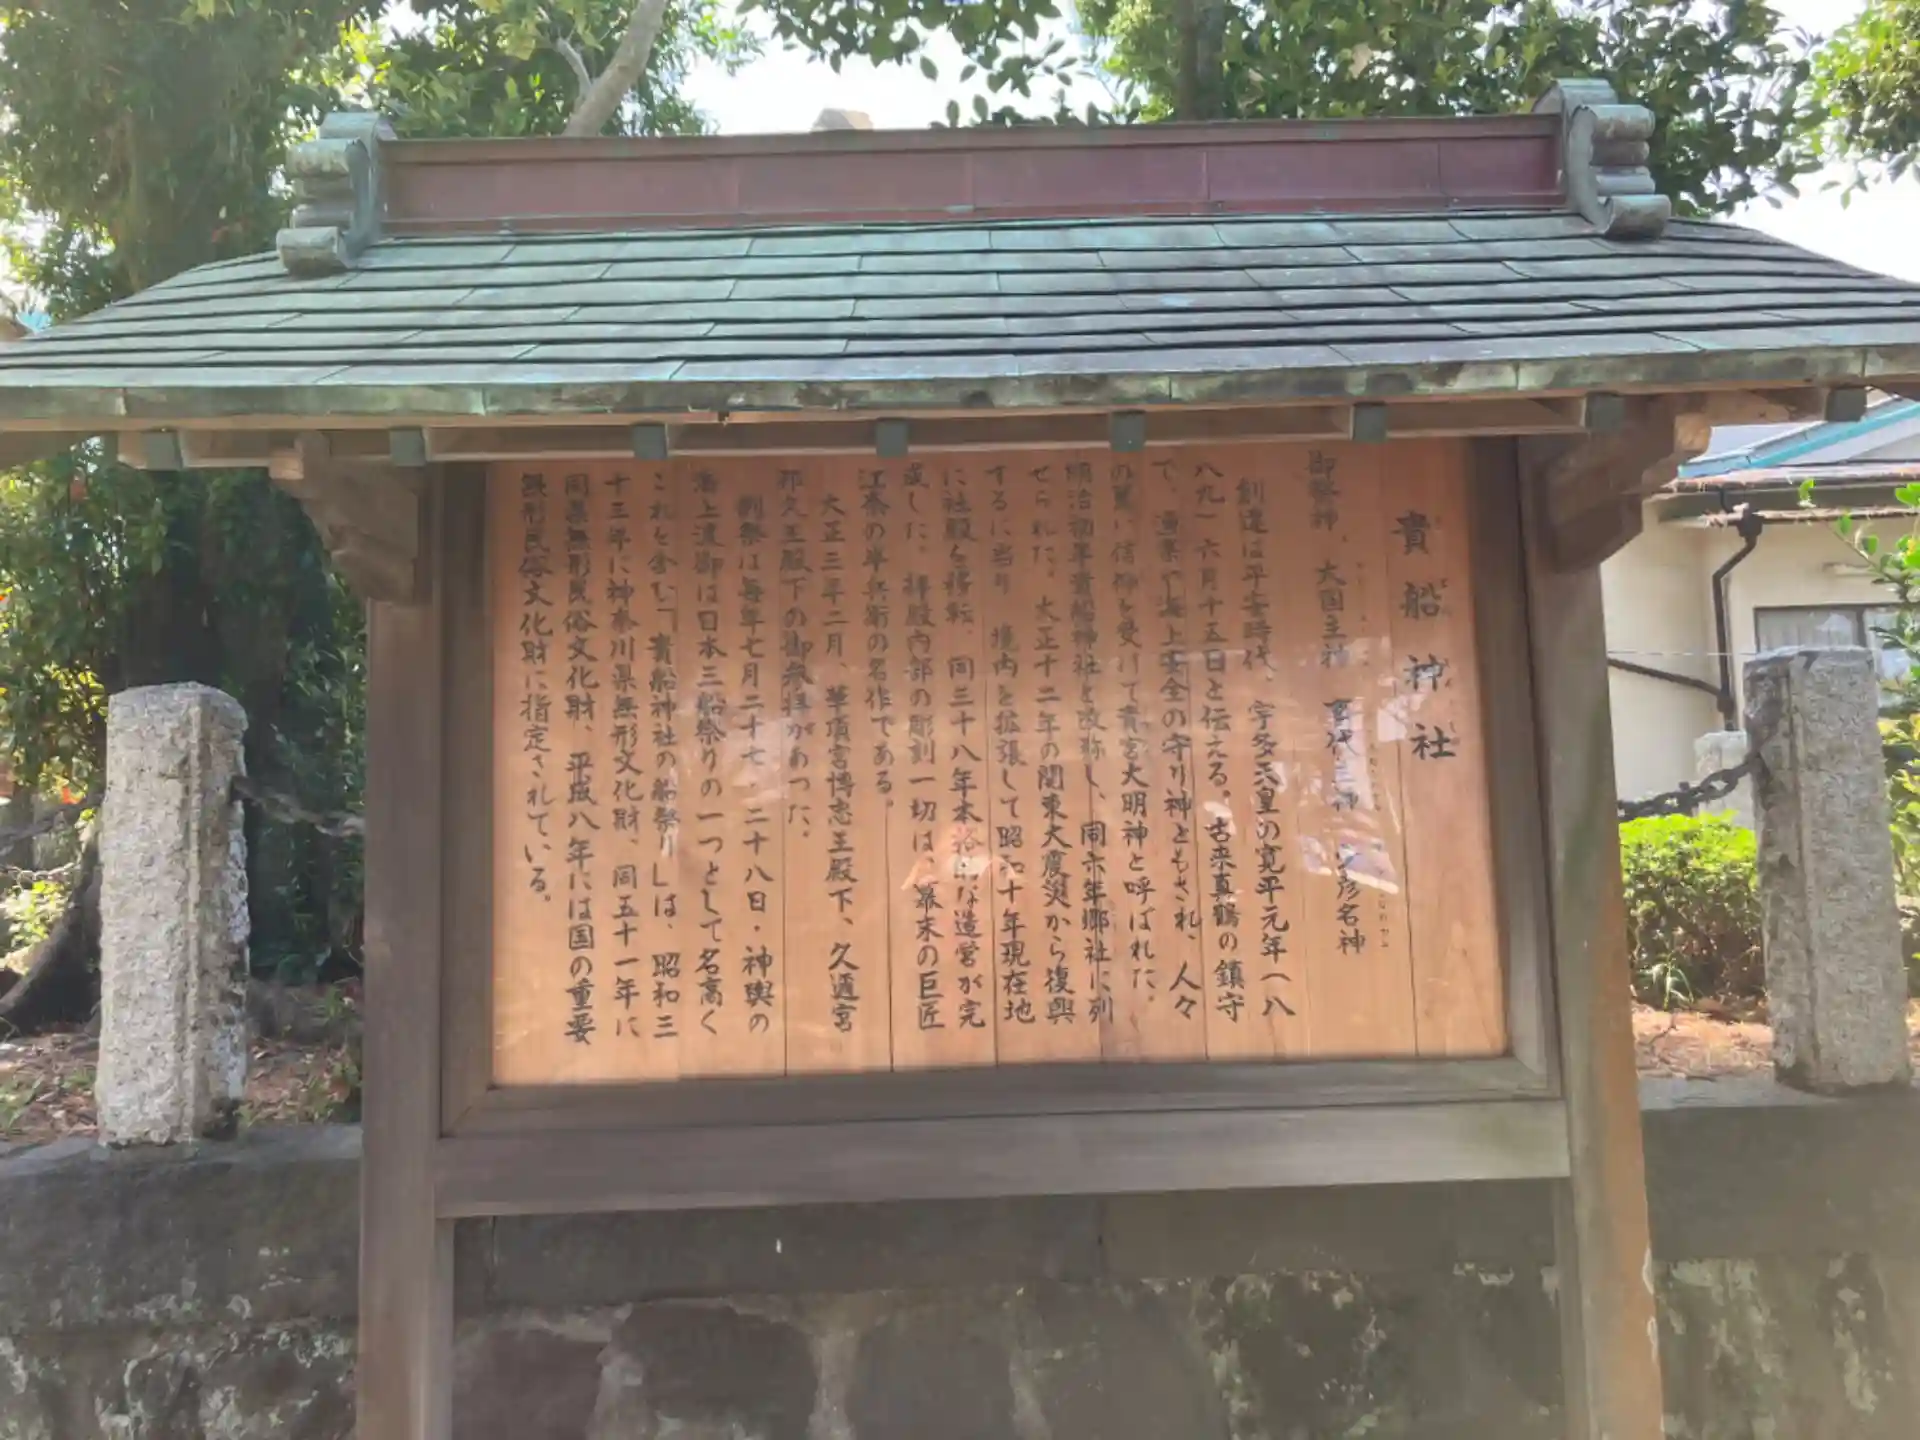 貴船神社
御祭神、大国主神 事代主神 少彦名神
創造は平安時代、宇多天皇の寛平元年(八
八九)六月十五日と伝える。古来真鶴の鎮守
で、漁業や海上安全の守り神ともされ、人々
の篤い信仰を受けて貴宮大明神と呼ばれた。
明治初年貴船神社と改称し、同六年郷社に列
せられた。大正十二年の関東大震災から復興
するに当り 境内を拡張して昭和十年現在地
に社殿を移転、同三十八年本格的な造営が完
成した。拝殿内部の彫刻一切は、幕末の巨匠
江奈の半兵衛の名作である。
大正三年二月、華頂宮博忠王殿下、久邇宮
邦久王殿下の御参拝があった。
例祭は毎年七月二十七・二十八日・神輿の
海上渡御は日本三船祭りの一つとして名高く
これを含む「貴船神社の船祭り」は、昭和三
十三年に神奈川県無形文化財、同五十一年に
同県無形民俗文化財、平成八年には国の重要
無形民俗文化財に指定されている。